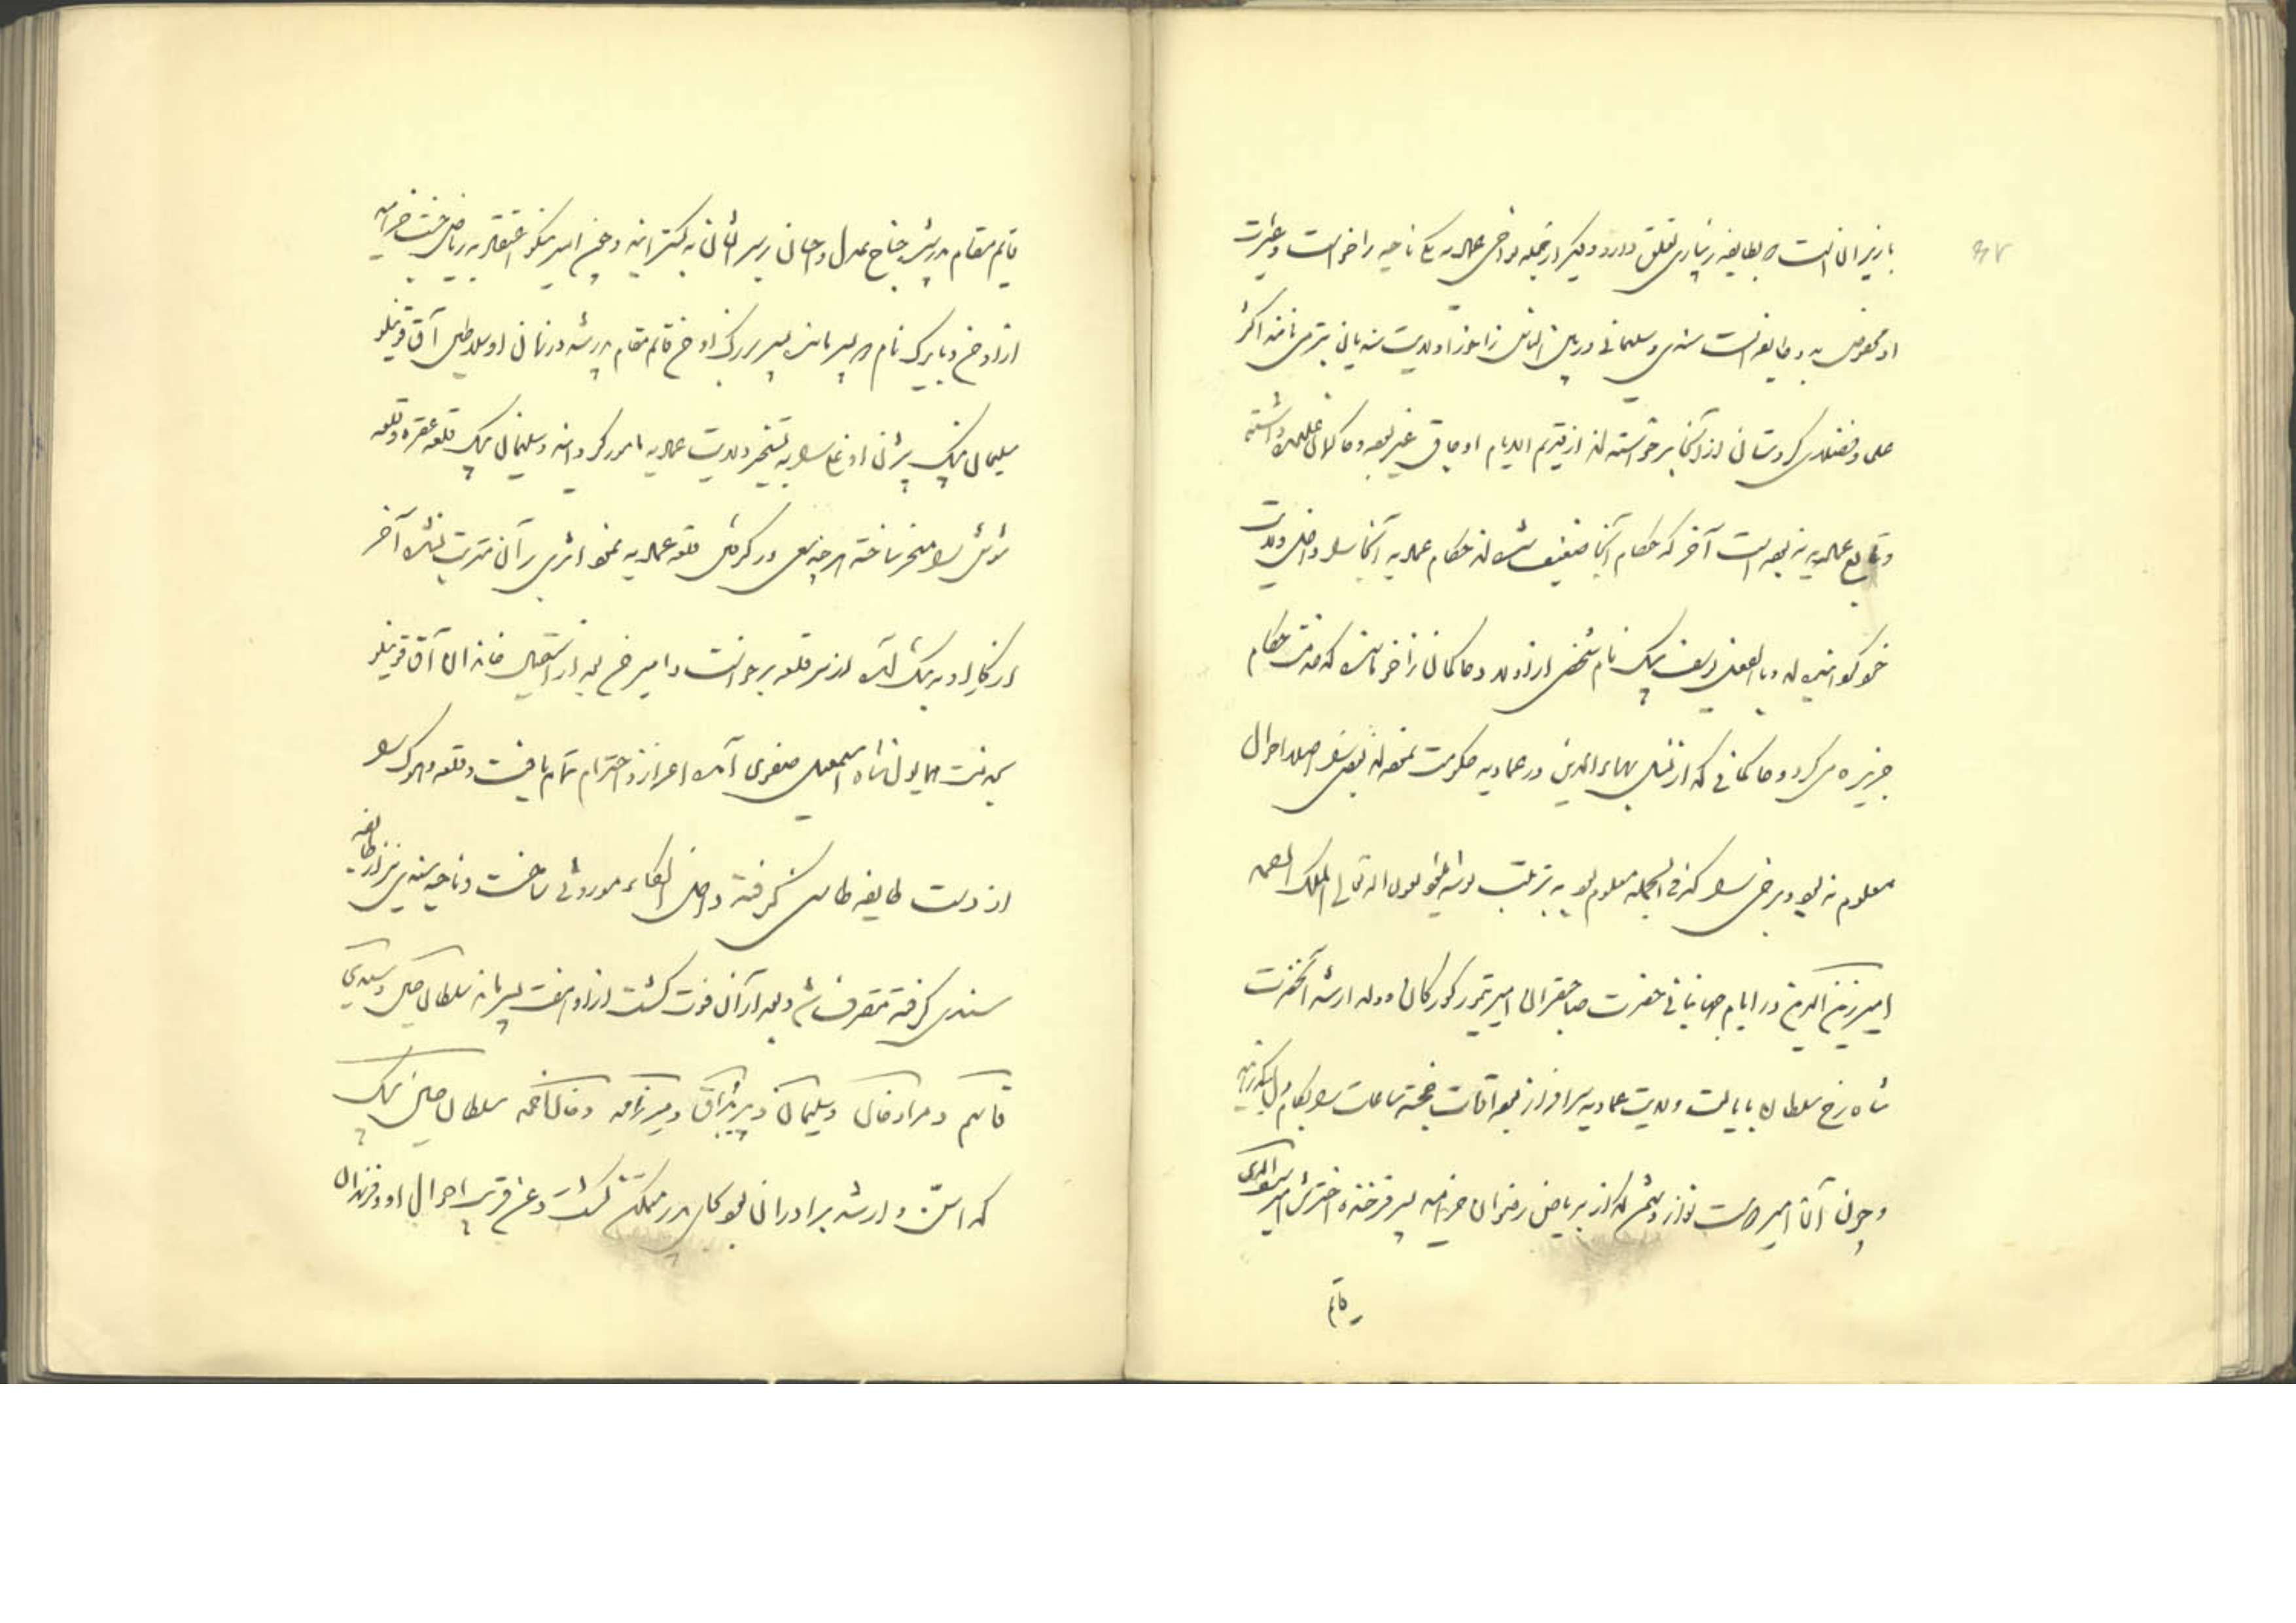 بارزیرانست و بطایفه زیباری تعلق دارد و دیگر از جمله نواحی عمادیه یک ناحیه زاخو است و عشیرت
او مخصوص بدو طایفه است سندی و سلیمانی در میان الناس زاخو را ولایت سندیان نیز می‌نامند اکثر
علما و فضلای کردستان از آنجا برخواسته‌اند از قدیم الایام اوجاق غیر بوده و حاکمان علیحده داشته
و تابع عمادیه نبوده است آخر که حکام آنجا ضعیف شده‌اند حکام عمادیه آنجا را داخل ولایت
خود گردانیده‌اند و بالفعل یوسف بیک نام شخصی از اولاد حاکمان زاخو مانده که خدمت حکام
جزیره می‌کرد و حاکمانی که از نسل بهاءالدین در عمادیه حکومت نموده‌اند بعضی را اصلا احوال
معلوم نبود و برخی را که فی الجمله معلوم بود به ترتیب نوشته خواهد شد بعون الله تعالی الملک الصمد
امیر زین الدین در ایام جهانبانی حضرت صاحبقران امیر تیمور گورکان و ولد ارشد آنحضرت
شاه رخ سلطان بایالت ولایت عمادیه سرافراز بوده اوقات خجسته ساعات را بکام دل میگذرانید
و چون آن امیر دوست نواز دشمن گداز بریاض رضوان خرامید پسر فرخنده اخترش امیر سیف الدین
قایم
قایم مقام پدر شده جناح عدل و احسان بر سر ایشان بگسترانید و چون امیر نیکو اعتقاد بریاض جنت خرامید
از او حسن و بایرک نام دو پسر مانده پسر بزرگ او حسن قایم مقام پدر شد در زمان او سلاطین آق قوینلو
سلیمان بیک بیژن اوغلی را به تسخیر ولایت عمادیه مامور گردانید و سلیمان بیک قلعه عقره و قلعه
شوش را مسخر ساخته هر چند سعی در گرفتن قلعه عمادیه نمود اثری بر آن مترتب نشد آخر
از کار او به تنگ آمده از سر قلعه برخواست و امیر حسن بعد از استیصال خاندان آق قوینلو
بخدمت همایون شاه اسمعیل صفوی آمده اعزاز و احترام تمام یافت و قلعه دهوک را
از دست طایفه طاسنی گرفته داخل الکاء موروثی ساخت و ناحیه سندی نیز از طایفه
سندی گرفته متصرف شد و بعد از آن فوت گشت از او هفت پسر مانده سلطان حسین و سیدی
قاسم و مرادخان و سلیمان و پیر بوداق و میرزا محمد و خان احمد سلطان حسین بیک
که اسن و ارشد برادران بود بجای پدر متمکن گشت و عنقریب احوال او و فرزندان